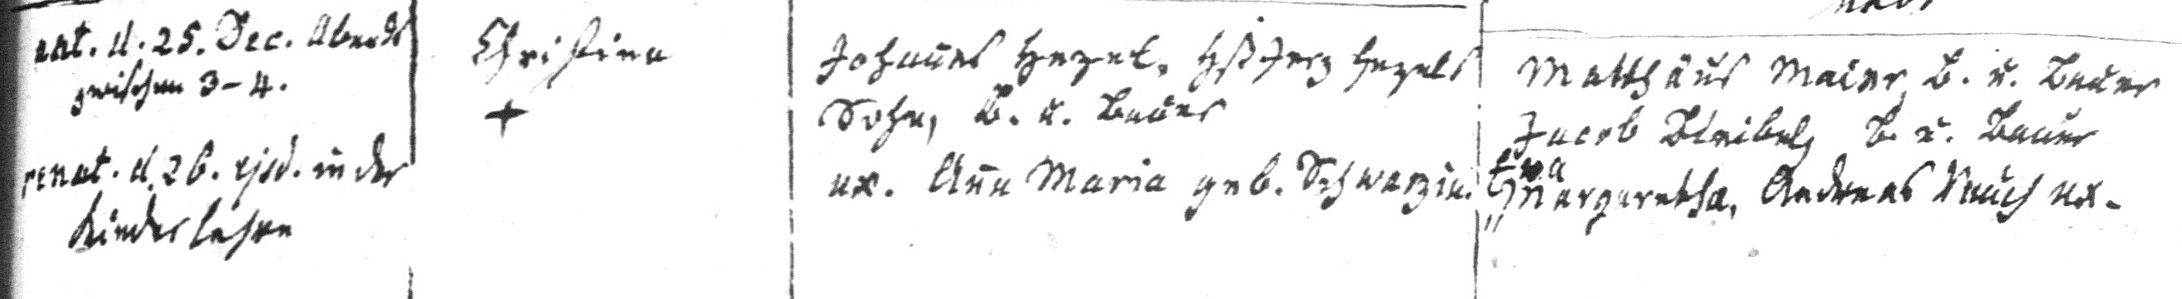 nat. d. 25. Dec. Abends
zwischen 3-4.
renat. d. 26. ejsd. in der
Kinderlehre
Christina
+
Johannes Hezel, Jerg Hezels
Sohn, B. u. Bauer
ux. Anna Maria geb. Schwarzin.
Matthäus Maier, B. u. Bauer
Jacob Bleibel, B. u. Bauer
Eva
Margaretha, Andreas Rauch ux.